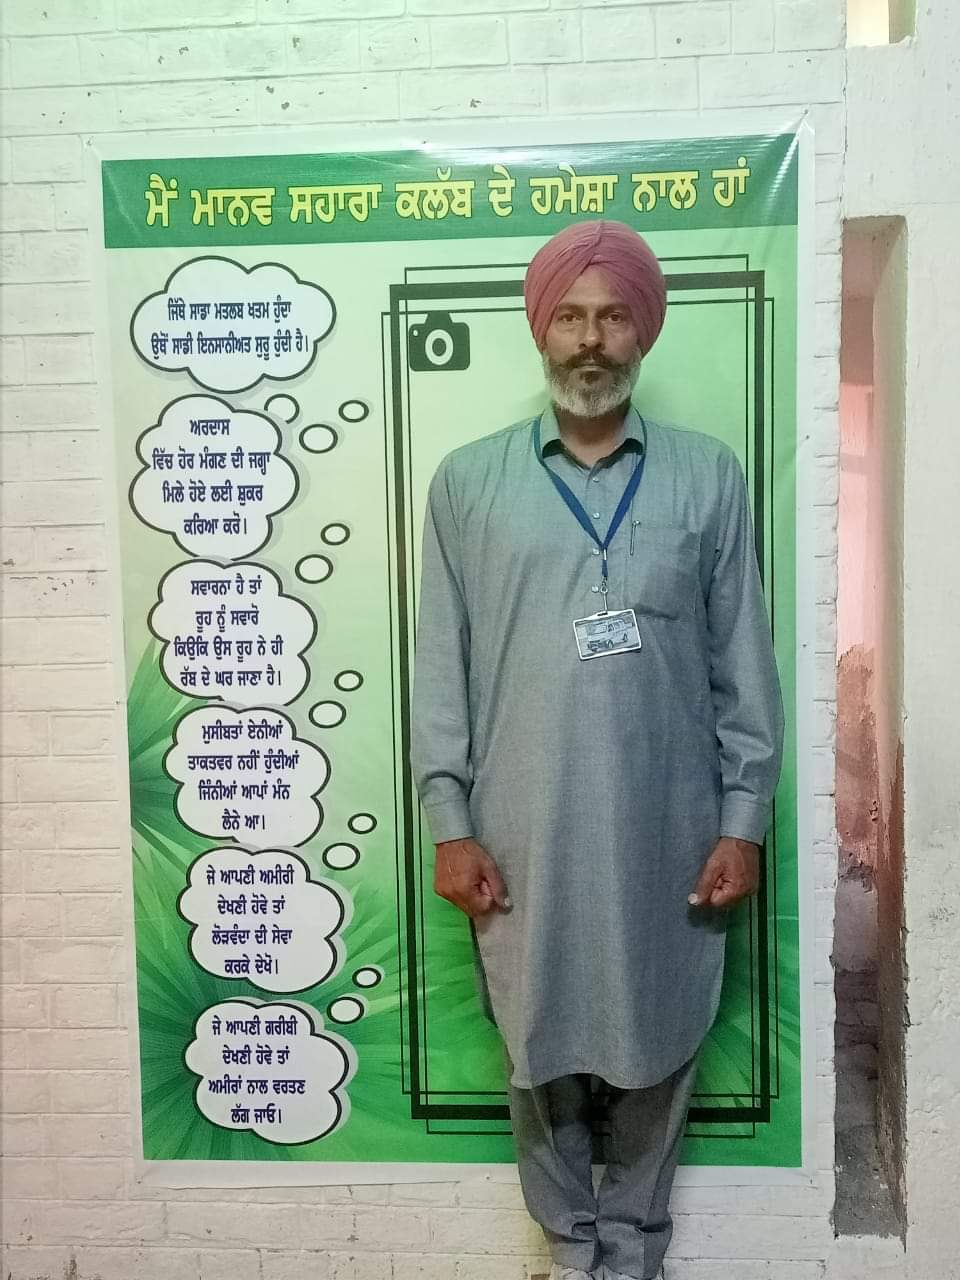 ਮੈਂ ਮਾਨਵ ਸਹਾਰਾ ਕਲੱਬ ਦੇ ਹਮੇਸ਼ਾ ਨਾਲ ਹਾਂ
ਜਿੱਥੇ ਸਾਡਾ ਮਤਲਬ ਖਤਮ ਹੁੰਦਾ
ਉਥੋਂ ਸਾਡੀ ਇਨਸਾਨੀਅਤ ਸੁਰੂ ਹੁੰਦੀ ਹੈ।
ਅਰਦਾਸ
ਵਿੱਚ ਹੋਰ ਮੰਗਣ ਦੀ ਜਗ੍ਹਾ
ਮਿਲੇ ਹੋਏ ਲਈ ਸ਼ੁਕਰ
ਕਰਿਆ ਕਰੋ।
ਸਵਾਰਨਾ ਹੈ ਤਾਂ
ਰੂਹ ਨੂੰ ਸਵਾਰੋ
ਕਿਉਕਿ ਉਸ ਰੂਹ ਨੇ ਹੀ
ਰੱਬ ਦੇ ਘਰ ਜਾਣਾ ਹੈ।
ਮੁਸੀਬਤਾਂ ਏਨੀਆਂ
ਤਾਕਤਵਰ ਨਹੀਂ ਹੁੰਦੀਆਂ
ਜਿੰਨੀਆਂ ਆਪਾਂ ਮੰਨ
ਲੈਨੇ ਆ।
ਜੇ ਆਪਣੀ ਅਮੀਰੀ
ਦੇਖਣੀ ਹੋਵੇ ਤਾਂ
ਲੋੜਵੰਦਾ ਦੀ ਸੇਵਾ
ਕਰਕੇ ਦੇਖੋ।
ਜੇ ਆਪਣੀ ਗਰੀਬੀ
ਦੇਖਣੀ ਹੋਵੇ ਤਾਂ
ਅਮੀਰਾਂ ਨਾਲ ਵਰਤਣ
ਲੱਗ ਜਾਓ।